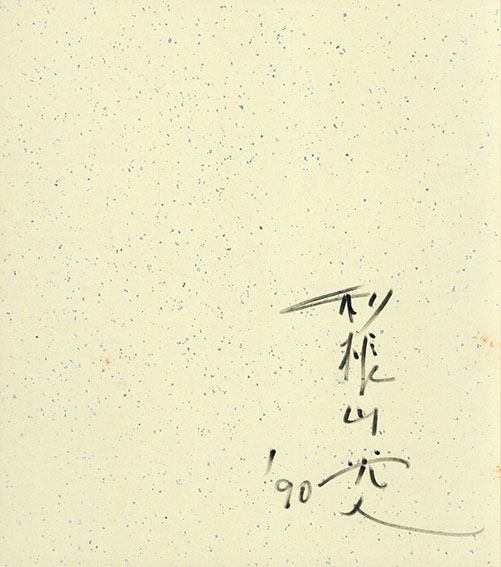 利根山光人
'90